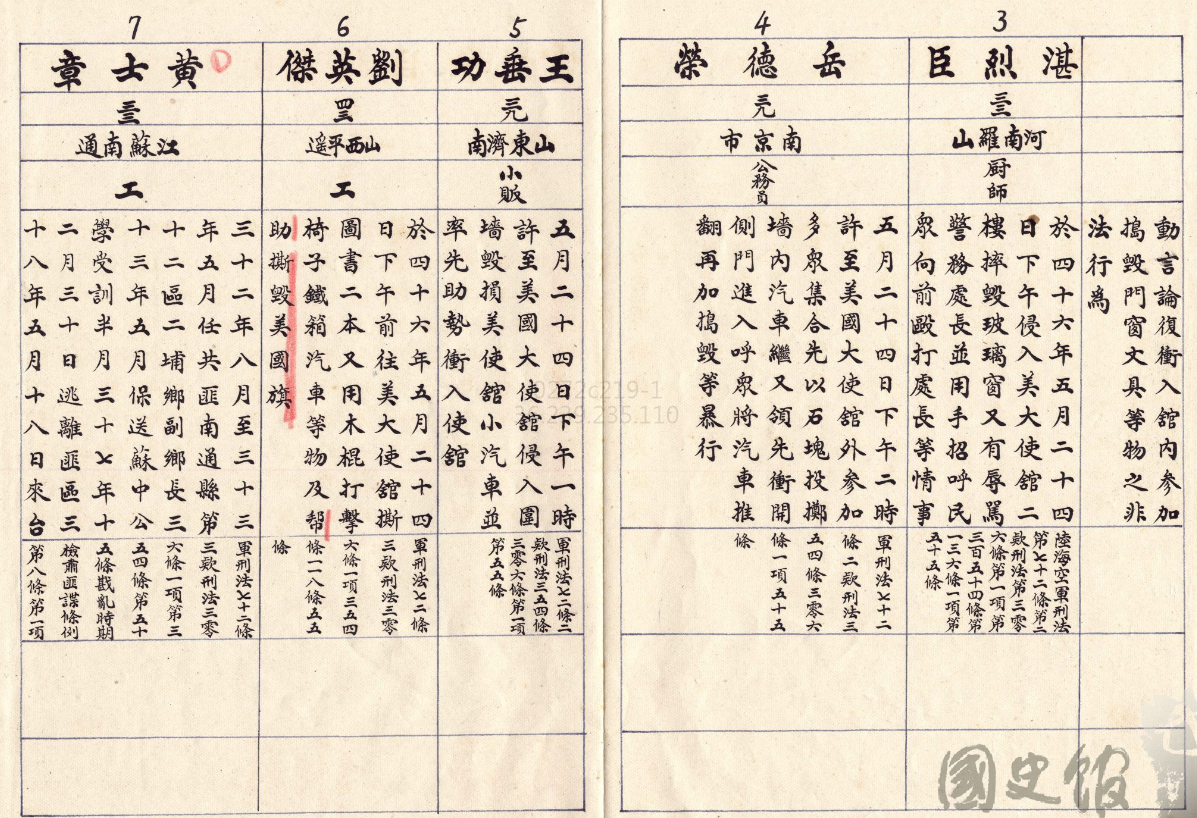 動言論復衝入舘內參加
搗毀門窗文具等物之非
法行為
3
湛烈臣
三三
河南羅山
厨師
於四十六年五月二十四
日下午侵入美大使舘二
樓摔毀玻璃窗又有辱罵
警務處長並用手招呼民
眾向前毆打處長等情事
陸海空軍刑法
第七十二條第二
款刑法第三零
六條第一項第
三百五十四條第
一三六條一項第
五十五條
4
岳德榮
三九
南京市
公務員
五月二十四日下午二時
許至美國大使舘外參加
多眾集合先以石塊投擲
墻內汽車繼又領先衝開
側門進入呼眾將汽車推
翻再加搗毀等暴行
軍刑法七十二
條二款刑法三
五四條三零六
條一項五十五
條
5
王垂功
三九
山東濟南
小販
五月二十四日下午一時
許至美國大使舘侵入圍
墻毀損美使舘小汽車並
率先助勢衝入使舘
軍刑法七二條二
款刑法三五四條
三零六條第一項
第五五條
6
劉英傑
四三
山西平遥
工
於四十六年五月二十四
日下午前往美大使舘撕
圖書二本又用木棍打擊
椅子鐵箱汽車等物及幫
助撕毀美國旗
軍刑法七二條
三款刑法三零
六條一項三五四
條一一八條五五
條
7
黄士章
三三
江蘇南通
工
三十二年八月至三十三
年五月任共匪南通縣第
十二區二埔鄉副鄉長三
十三年五月保送蘇中公
學受訓半月三十七年十
二月三十日逃離匪區三
十八年五月十八日來台
軍刑法七十二條
三款刑法三零
六條一項第三
五四條第五十
五條戡亂時期
檢肅匪諜條例
第八條第一項
國史館